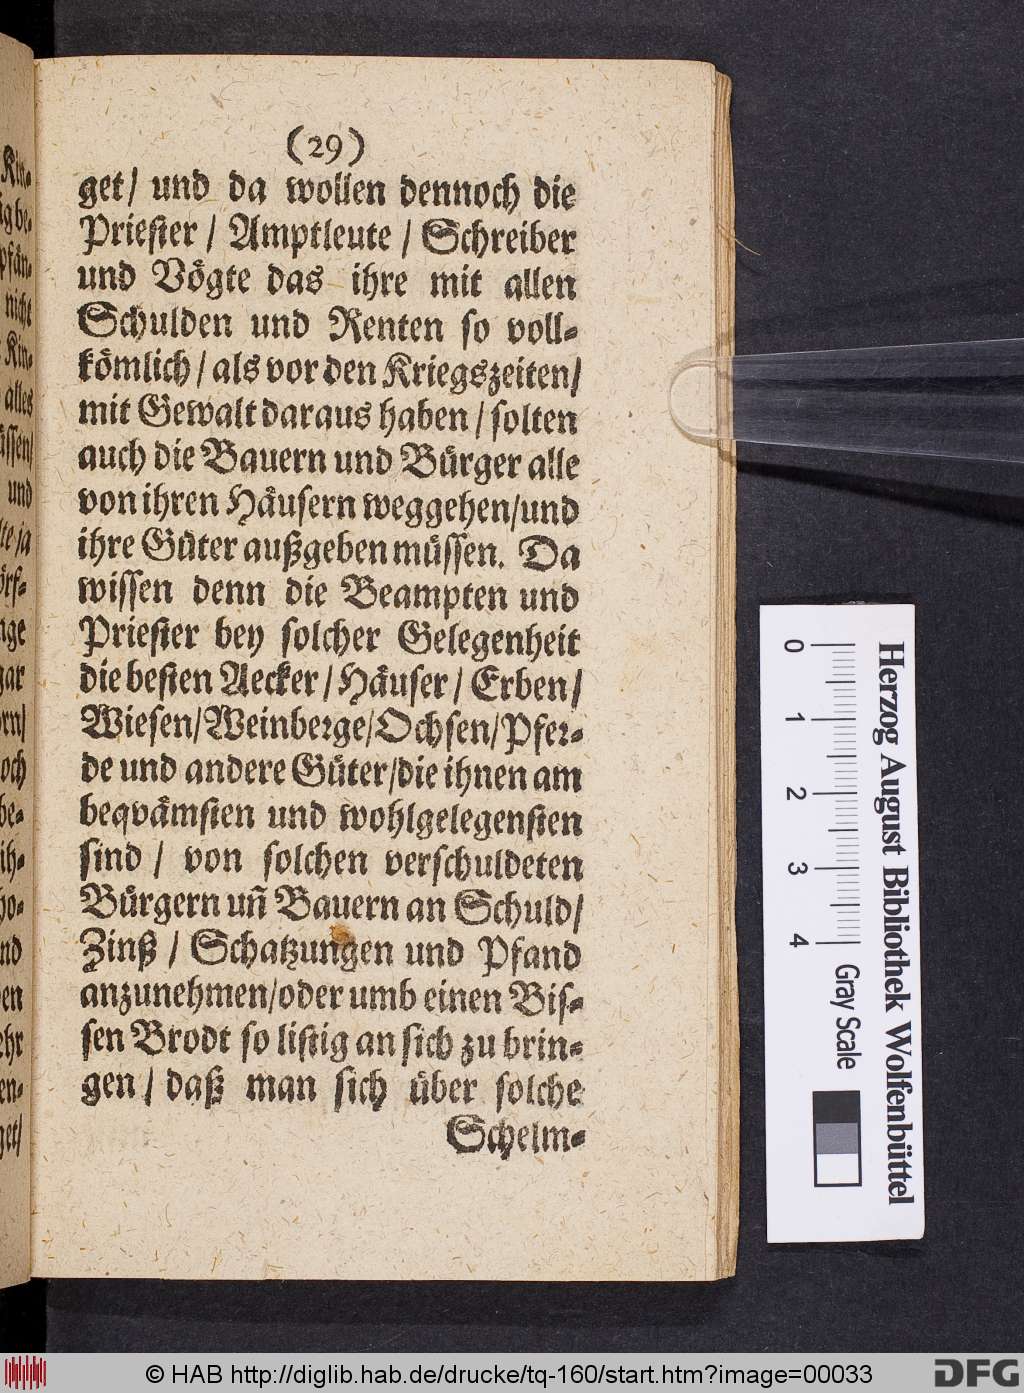 (29)
get/ und da wollen dennoch die
Priester / Amptleute / Schreiber
und Vögte das ihre mit allen
Schulden und Renten so voll-
kömlich / als vor den Kriegszeiten/
mit Gewalt daraus haben / solten
auch die Bauern und Bürger alle
von ihren Häusern weggehen/und
ihre Güter außgeben müssen. Da
wissen denn die Beampten und
Priester bey solcher Gelegenheit
die besten Aecker / Häuser / Erben/
Wiesen/Weinberge/Ochsen/Pfer-
de und andere Güter/die ihnen am
beqvämsten und wohlgelegensten
sind / von solchen verschuldeten
Bürgern uñ Bauern an Schuld/
Zinß / Schatzungen und Pfand
anzunehmen/oder umb einen Bis-
sen Brodt so listig an sich zu brin-
gen / daß man sich über solche
Schelm-
Kin-
nicht
Kin-
alles
und
0 1 2 3 4
Gray Scale
Herzog August Bibliothek Wolfenbüttel
© HAB http://diglib.hab.de/drucke/tq-160/start.htm?image=00033
DFG